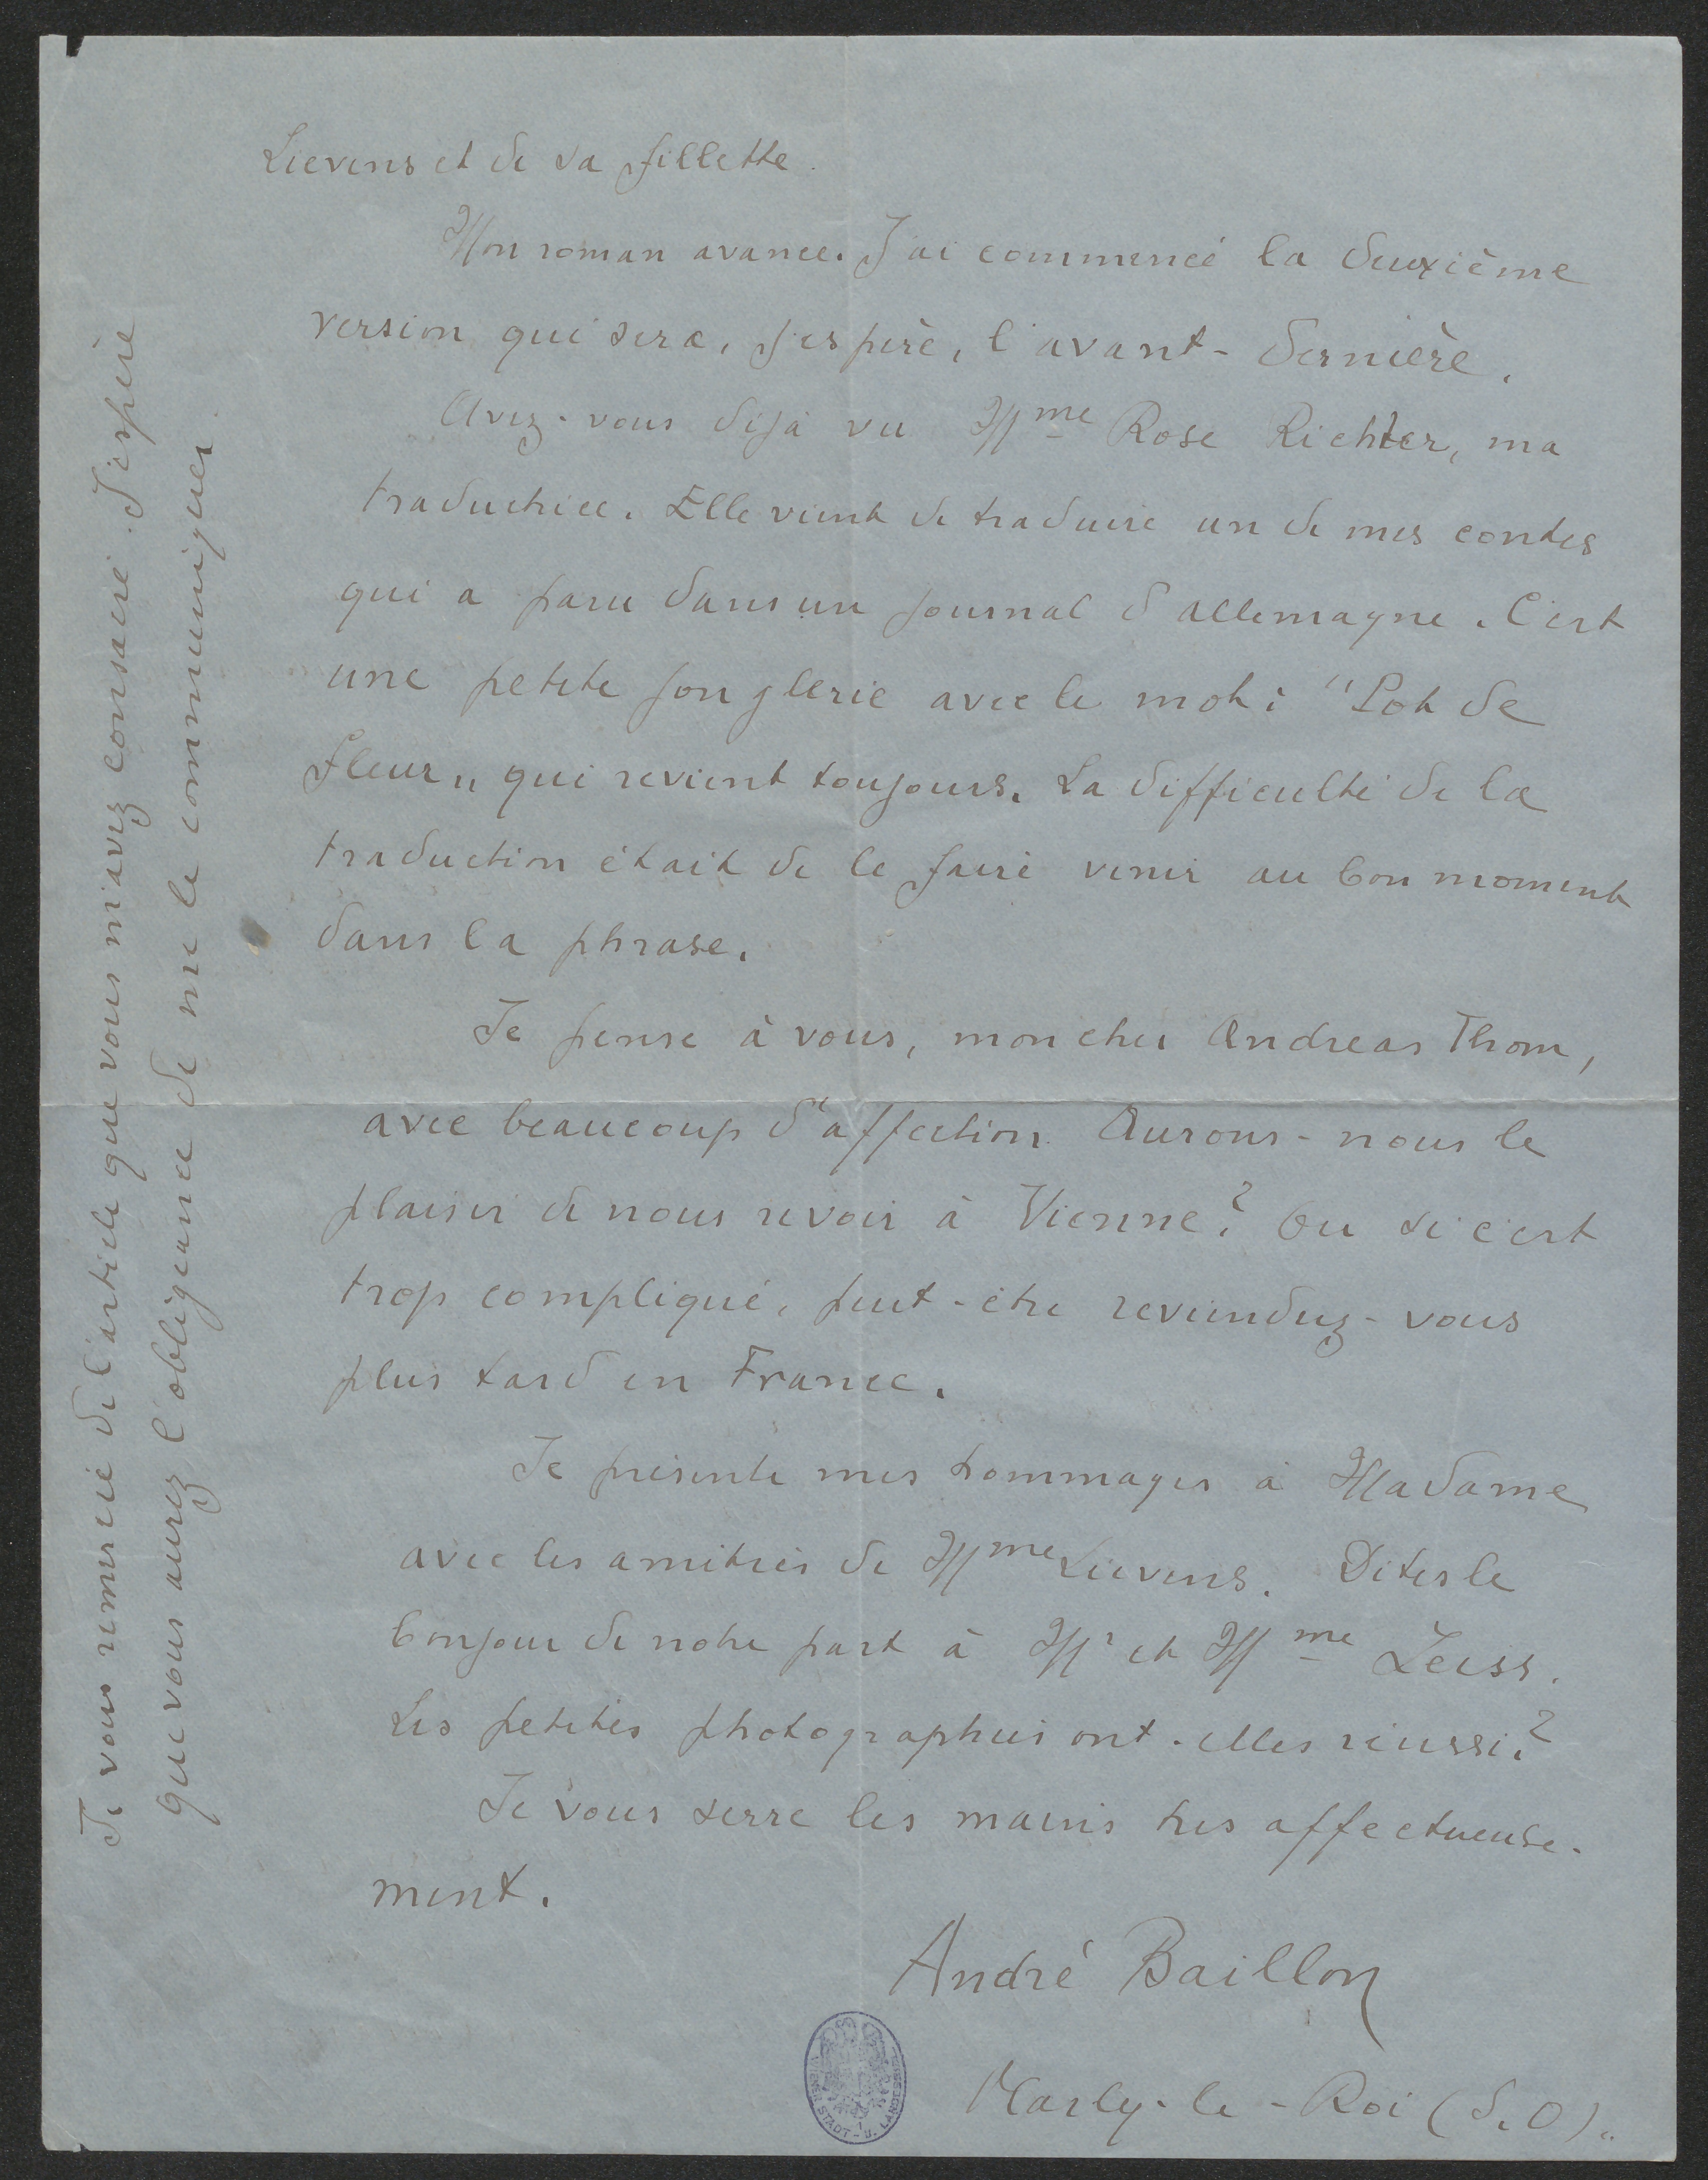 Lievens et de sa fillette.
Mon roman avance. J'ai commencé la deuxième
version qui sera, j'espère, l'avant-dernière.
Avez-vous déjà vu Mme Rose Richter, ma
traductrice. Elle vient de traduire un de mes contes
qui a paru dans un journal d'allemagne. C'est
une petite jonglerie avec le mot : "Pot de
fleur" qui revient toujours. La difficulté de la
traduction était de le faire venir au bon moment
dans la phrase.
Je pense à vous, mon cher Andreas Thom,
avec beaucoup d'affection. Aurons-nous le
plaisir de nous revoir à Vienne ? Ou si c'est
trop compliqué, peut-être reviendrez-vous
plus tard en France.
Je présente mes hommages à Madame
avec les amitiés de Mme Lievens. Dites le
bonjour de notre part à Mr et Mme Zeiss.
Les petites photographies ont-elles réussi ?
Je vous serre les mains très affectueuse-
ment.
André Baillon
Marly-le-Roi (S. O).
Je vous remercie de l'article que vous m'avez consacré. J'espère
que vous aurez l'obligeance de me le communiquer.
WIENER STADT- U. LANDESBIBL.